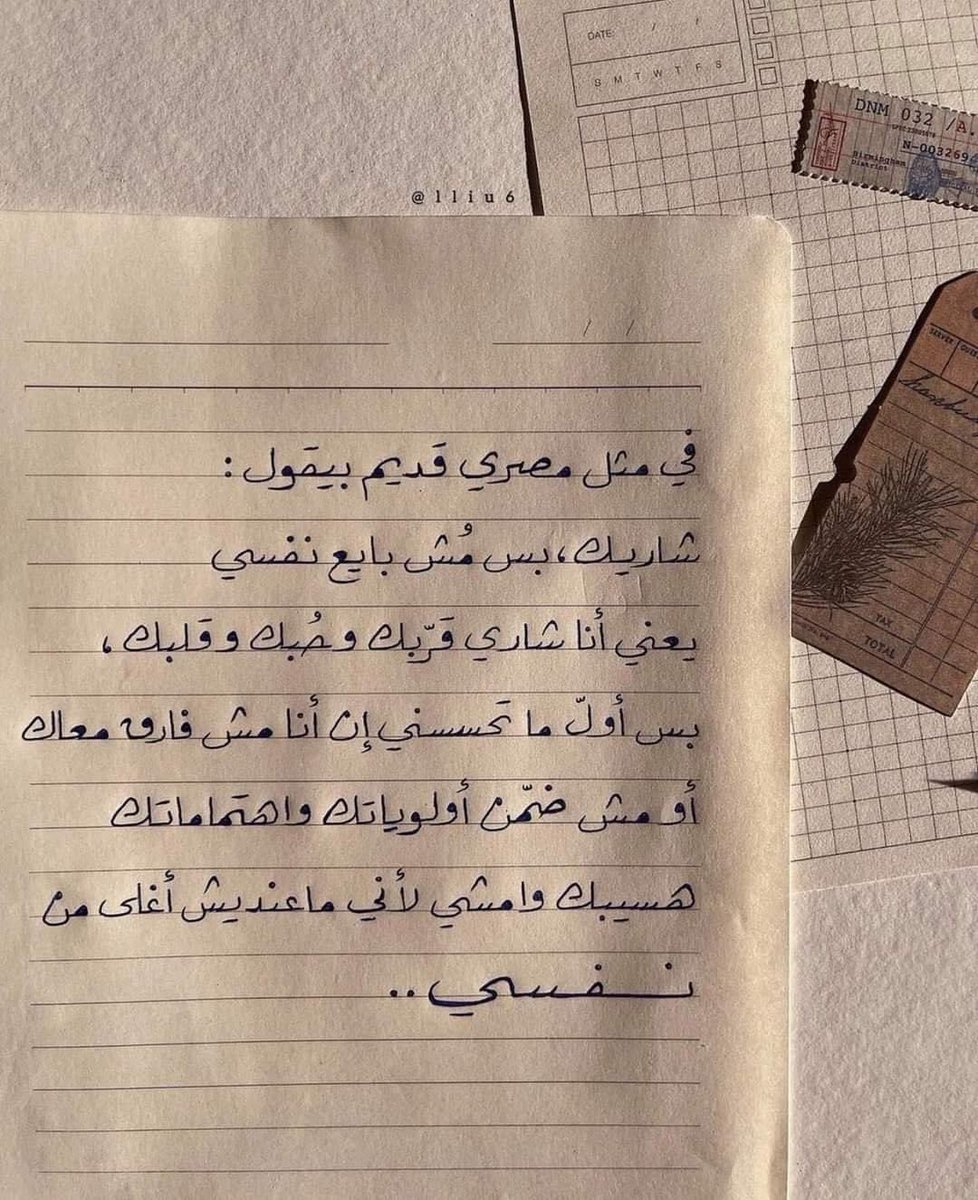 DATE: / /
S M T W T F S
DNM 032 /A.
N-003269
Birmingham
District
@lliu6
/ /
في مثل مصري قديم بيقول :
شاريك، بس مُش بايع نفسي
يعني أنا شاري قرّبك وحُبك وقلبك ،
بس أولّ ما تحسسني إن أنا مش فارق معاك
أو مش ضمّن أولوياتك واهتماماتك
هسيبك وامشي لأني ماعنديش أغلى من
نـفـسي ..
SERVER
TAX
TOTAL